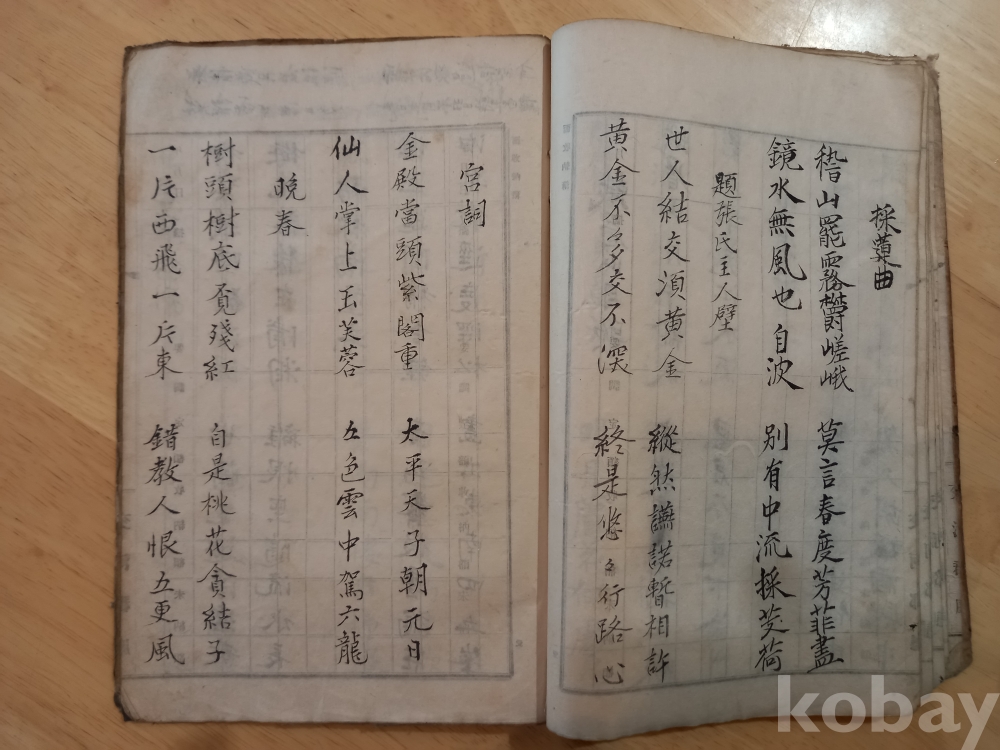 採蓮曲
稽山罷霧鬱嵯峨 莫言春度芳菲盡
鏡水無風也自波 別有中流採芰荷
題張氏主人壁
世人結交須黃金 縱然讌諾暫相許
黃金不多交不深 終是悠々行路心
宮詞
金殿當頭紫閣重 太平天子朝元日
仙人掌上玉芙蓉 五色雲中駕六龍
晚春
樹頭樹底覓殘紅 自是桃花貪結子
一片西飛一片東 錯教人恨五更風
kobay